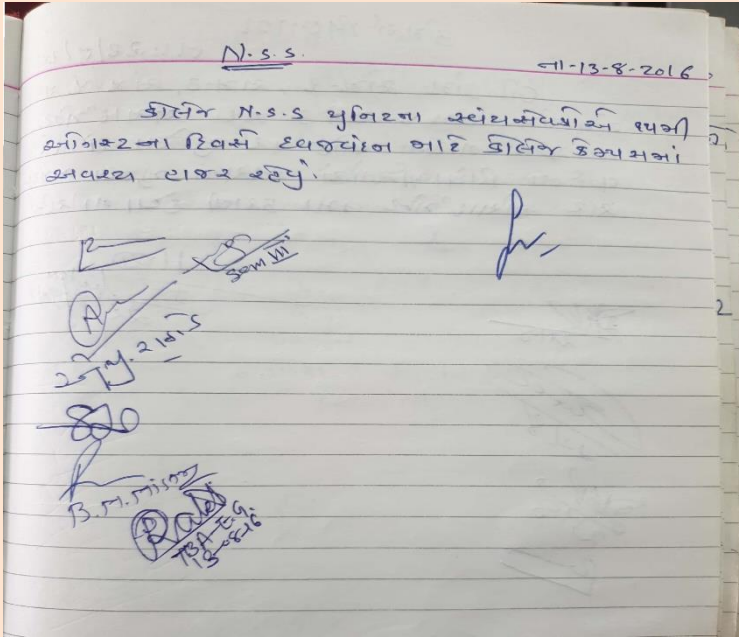 N.S.S.
તા-13-8-2016
કોલેજ N.S.S યુનિટના સ્વંયસેવકોએ ૧૫મી
ઓગસ્ટના દિવસે ધ્વજવંદન માટે કોલેજ કેમ્પસમાં
અવશ્ય હાજર રહેવું.
Sem VII
B.M.Mistry
TBA-E.G.
13-08-16
2